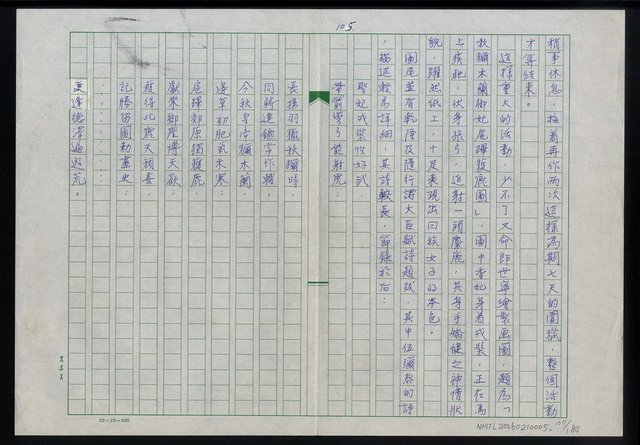 105
稍事休息,接着再作兩次這樣為期七天的圍獵,整個活動
才算結束。
這樣重大的活動,少不了又命郎世寧繪製画圖,題為「
秋獮木蘭御妃尾蹕獲鹿圖」,圖中香妃身着戎裝,正在馬
上疾馳,伏身張弓,追射一頭麋鹿,其身手矯健之神情狀
貌,躍然紙上,十足表現出回族女子的本色。
圖尾並有乾隆及隨行諸大臣賦詩題跋,其中伍彌泰的詩
,描述較為詳細,其詩較長,節錄於后:
聖妃戎裝性好武
帶箭彎弓能射虎;
長揚羽獵秋獮時
同轡連鑣
今秋皇 獮木蘭
邊草初肥氣未寒;
扈蹕郊原獨獲鹿
獻來御座博天歡;
獲得此鹿天顏喜
記勝留圖勒畫史;
更連德澤遍遐荒。
20×25=500
NMTL20060210005, 107/181